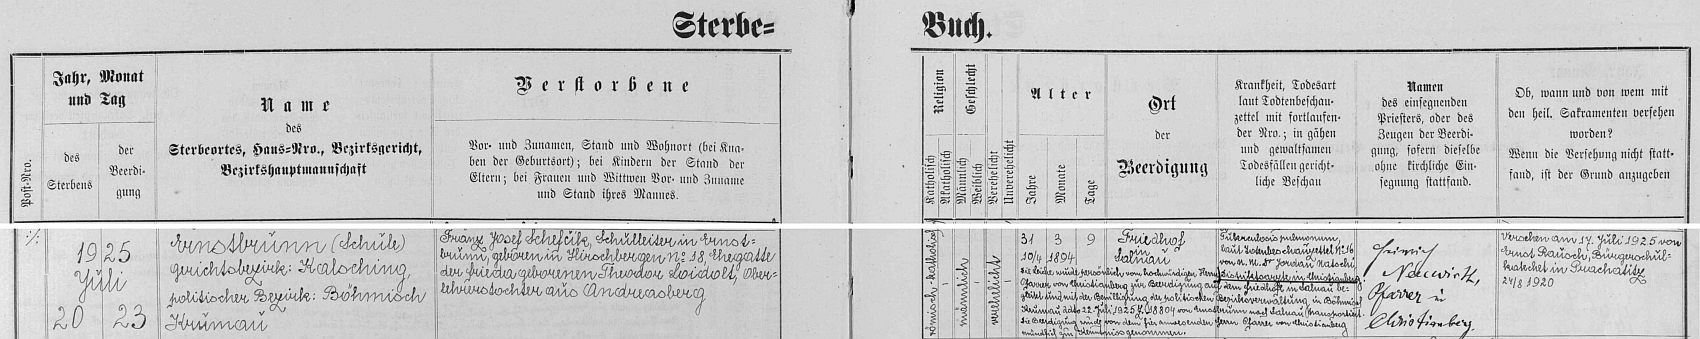 Sterbe=
Buch.
Post-Nro.
Jahr, Monat
und Tag
des
Sterbens
der
Beerdi-
gung
Name
des
Sterbeortes, Haus=Nro., Bezirksgericht,
Bezirkshauptmannschaft
Verstorbene
Vor- und Zunamen, Stand und Wohnort (bei Kna-
ben der Geburtsort); bei Kindern der Stand der
Eltern; bei Frauen und Wittwen Vor- und Zuname
und Stand ihres Mannes.
Religion
Katholisch
Akatholisch
Geschlecht
Männlich
Weiblich
Verehelicht
Unverehelicht
Alter
Jahre
Monate
Tage
Ort
der
Beerdigung
Krankheit, Todesart
laut Todtenbeschau-
zettel mit fortlaufen-
der Nro.; in gähen
und gewaltsamen
Todesfällen gericht-
liche Beschau
Namen
des einsegnenden
Priesters, oder des
Zeugen der Beerdi-
gung, sofern dieselbe
ohne kirchliche Ein-
segnung stattfand.
Ob, wann und von wem mit
den heil. Sakramenten versehen
worden?
Wenn die Versehung nicht statt-
fand, ist der Grund anzugeben
1925
Juli
20 23
Ernstbrunn (Schule)
Gerichtsbezirk: Kalsching,
politischer Bezirk: Böhmisch
Krumau
Franz Josef Schefčik, Schulleiter in Ernst-
brunn, geboren in Hirschbergen No 18, Ehegatte
der Frieda geborenen Theodor Loidolt, Ober-
lehrerstochter aus Andreasberg
römisch-katholisch
männlich
verehelicht
31 3 9
10/4 1894
Friedhof
in
Salnau
Tuberculosis pulmonum,
laut Totenbeschauzettel No 16
von M. U. Dr Jordan Natschi,
Distriktsarzte in Christianberg
Die Leiche wurde persönlich vom hochwürdigen Herrn
Pfarrer von Christianberg zur Beerdigung auf dem Friedhofe in Salnau be-
gleitet und mit der Bewilligung der politischen Bezirksverwaltung in Böhmisch
Krumau ddto 22. Juli 1925 Z. 18804 von Ernstbrunn nach Salnau transportiert.
Die Beerdigung wurde von dem hier anwesenden Herrn Pfarrer von Christianberg
mündlich zur Kenntnis genommen.
Heinrich
Neuwirth,
Pfarrer in
Christianberg.
Versehen am 17. Juli 1925 von
Ernst Rausch, Bürgerschul-
katechet in Prachatitz
24/8 1920